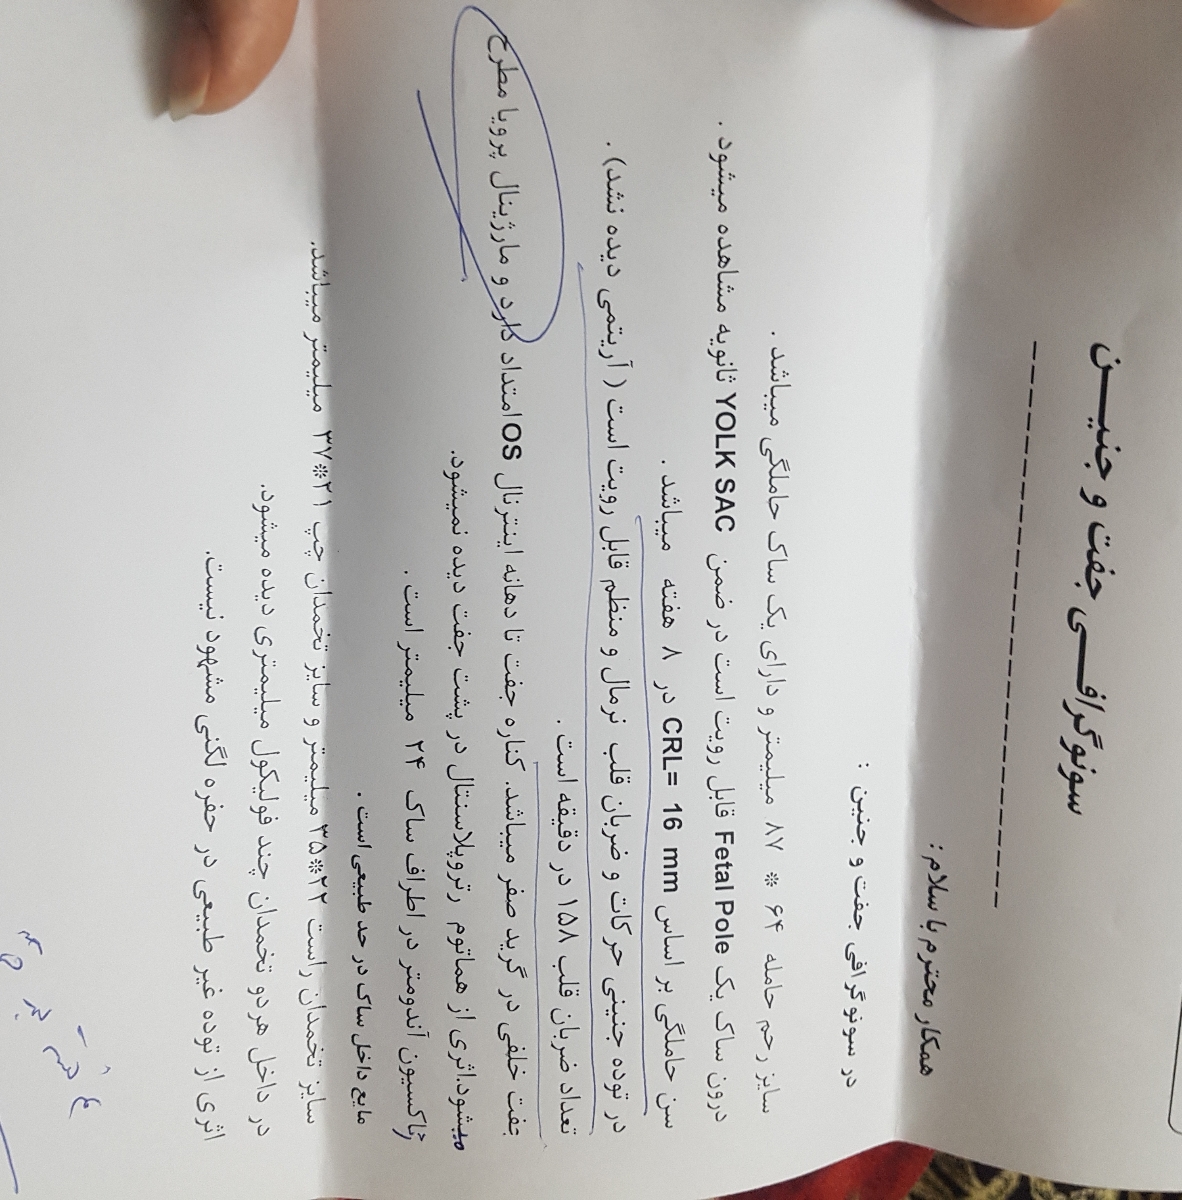 سونوگرافـــی جفت و جنیـــن
همکار محترم با سلام :
در سونوگرافی جفت و جنین :
سایز رحم حامله ۶۴ * ۸۷ میلیمتر و دارای یک ساک حاملگی میباشد .
درون ساک یک Fetal Pole قابل رویت است در ضمن YOLK SAC ثانویه مشاهده میشود .
سن حاملگی بر اساس CRL= 16 mm در ۸ هفته میباشد .
در توده جنینی حرکات و ضربان قلب نرمال و منظم قابل رویت است ( آریتمی دیده نشد) .
تعداد ضربان قلب ۱۵۸ در دقیقه است .
جفت خلفی در گرید صفر میباشد. کناره جفت تا دهانه اینترنال OS امتداد دارد و مارژینال پرویا مطرح
میشود.اثری از هماتوم رتروپلاسنتال در پشت جفت دیده نمیشود.
راکسیون آندومتر در اطراف ساک ۲۴ میلیمتر است .
مایع داخل ساک در حد طبیعی است .
سایز تخمدان راست ۲۲*۳۵ میلیمتر و سایز تخمدان چپ ۲۱*۳۷ میلیمتر میباشد.
در داخل هر دو تخمدان چند فولیکول میلیمتری دیده میشود.
اثری از توده غیر طبیعی در حفره لگنی مشهود نیست.